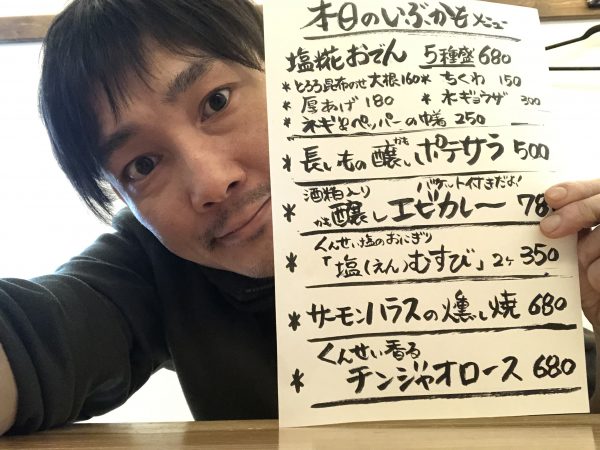 本日のいぶかもメニュー
塩糀おでん 5種盛680
*とろろ昆布のせ大根160 *ちくわ 150
*厚あげ180 *水ギョウザ 300
*ネギ&ペッパーの巾着250
*長いもの醸しポテサラ 500
かも
酒粕入り バケット付きだよ!
*醸しエビカレー 78
かも
くんせい塩のおにぎり
*「塩(えん)むすび」2ヶ350
*サーモンハラスの燻し焼 680
くんせい香る
*チンジャオロース 680